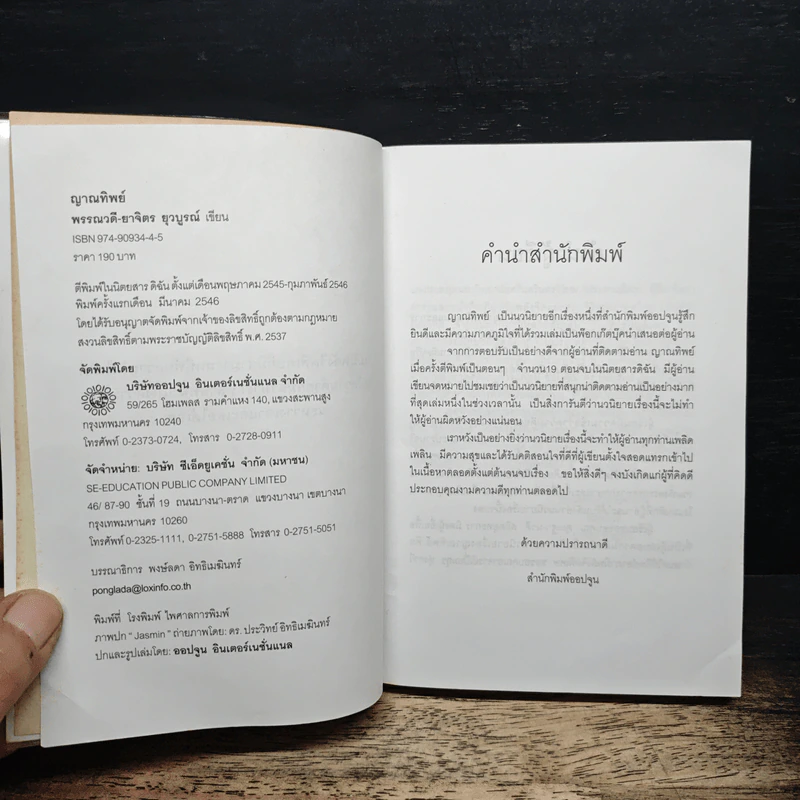 ญาณทิพย์
พรรณวดี-ยาจิตร ยุวบูรณ์ เขียน
ISBN 974-90934-4-5
ราคา 190 บาท
ตีพิมพ์ในนิตยสาร ดิฉัน ตั้งแต่เดือนพฤษภาคม 2545-กุมภาพันธ์ 2546
พิมพ์ครั้งแรกเดือน มีนาคม 2546
โดยได้รับอนุญาตจัดพิมพ์จากเจ้าของลิขสิทธิ์ถูกต้องตามกฎหมาย
สงวนลิขสิทธิ์ตามพระราชบัญญัติลิขสิทธิ์ พ.ศ. 2537
จัดพิมพ์โดย
บริษัทออปจูน อินเตอร์เนชั่นแนล จำกัด
59/265 โฮมเพลส รามคำแหง 140, แขวงสะพานสูง
กรุงเทพมหานคร 10240
โทรศัพท์ 0-2373-0724, โทรสาร 0-2728-0911
จัดจำหน่าย: บริษัท ซีเอ็ดยูเคชั่น จำกัด (มหาชน)
SE-EDUCATION PUBLIC COMPANY LIMITED
46/ 87-90 ชั้นที่ 19 ถนนบางนา-ตราด แขวงบางนา เขตบางนา
กรุงเทพมหานคร 10260
โทรศัพท์ 0-2325-1111, 0-2751-5888 โทรสาร 0-2751-5051
บรรณาธิการ พงษ์ลดา อิทธิเมฆินทร์
ponglada@loxinfo.co.th
พิมพ์ที่ โรงพิมพ์ ไพศาลการพิมพ์
ภาพปก " Jasmin " ถ่ายภาพโดย: ดร. ประวิทย์ อิทธิเมฆินทร์
ปกและรูปเล่มโดย: ออปจูน อินเตอร์เนชั่นแนล
คำนำสำนักพิมพ์
ญาณทิพย์ เป็นนวนิยายอีกเรื่องหนึ่งที่สำนักพิมพ์ออปจูนรู้สึก
ยินดีและมีความภาคภูมิใจที่ได้รวมเล่มเป็นพ๊อกเก๊ตบุ๊คนำเสนอต่อผู้อ่าน
จากการตอบรับเป็นอย่างดีจากผู้อ่านที่ติดตามอ่าน ญาณทิพย์
เมื่อครั้งตีพิมพ์เป็นตอนๆ จำนวน19 ตอนจบในนิตยสารดิฉัน มีผู้อ่าน
เขียนจดหมายไปชมเชยว่าเป็นนวนิยายที่สนุกน่าติดตามอ่านเป็นอย่างมาก
ที่สุดเล่มหนึ่งในช่วงเวลานั้น เป็นสิ่งการันตีว่านวนิยายเรื่องนี้จะไม่ทำ
ให้ผู้อ่านผิดหวังอย่างแน่นอน
เราหวังเป็นอย่างยิ่งว่านวนิยายเรื่องนี้จะทำให้ผู้อ่านทุกท่านเพลิด
เพลิน มีความสุขและได้รับคติสอนใจที่ดีที่ผู้เขียนตั้งใจสอดแทรกเข้าไป
ในเนื้อหาตลอดตั้งแต่ต้นจนจบเรื่อง ขอให้สิ่งดีๆ จงบังเกิดแก่ผู้ที่คิดดี
ประกอบคุณงามความดีทุกท่านตลอดไป
ด้วยความปรารถนาดี
สำนักพิมพ์ออปจูน